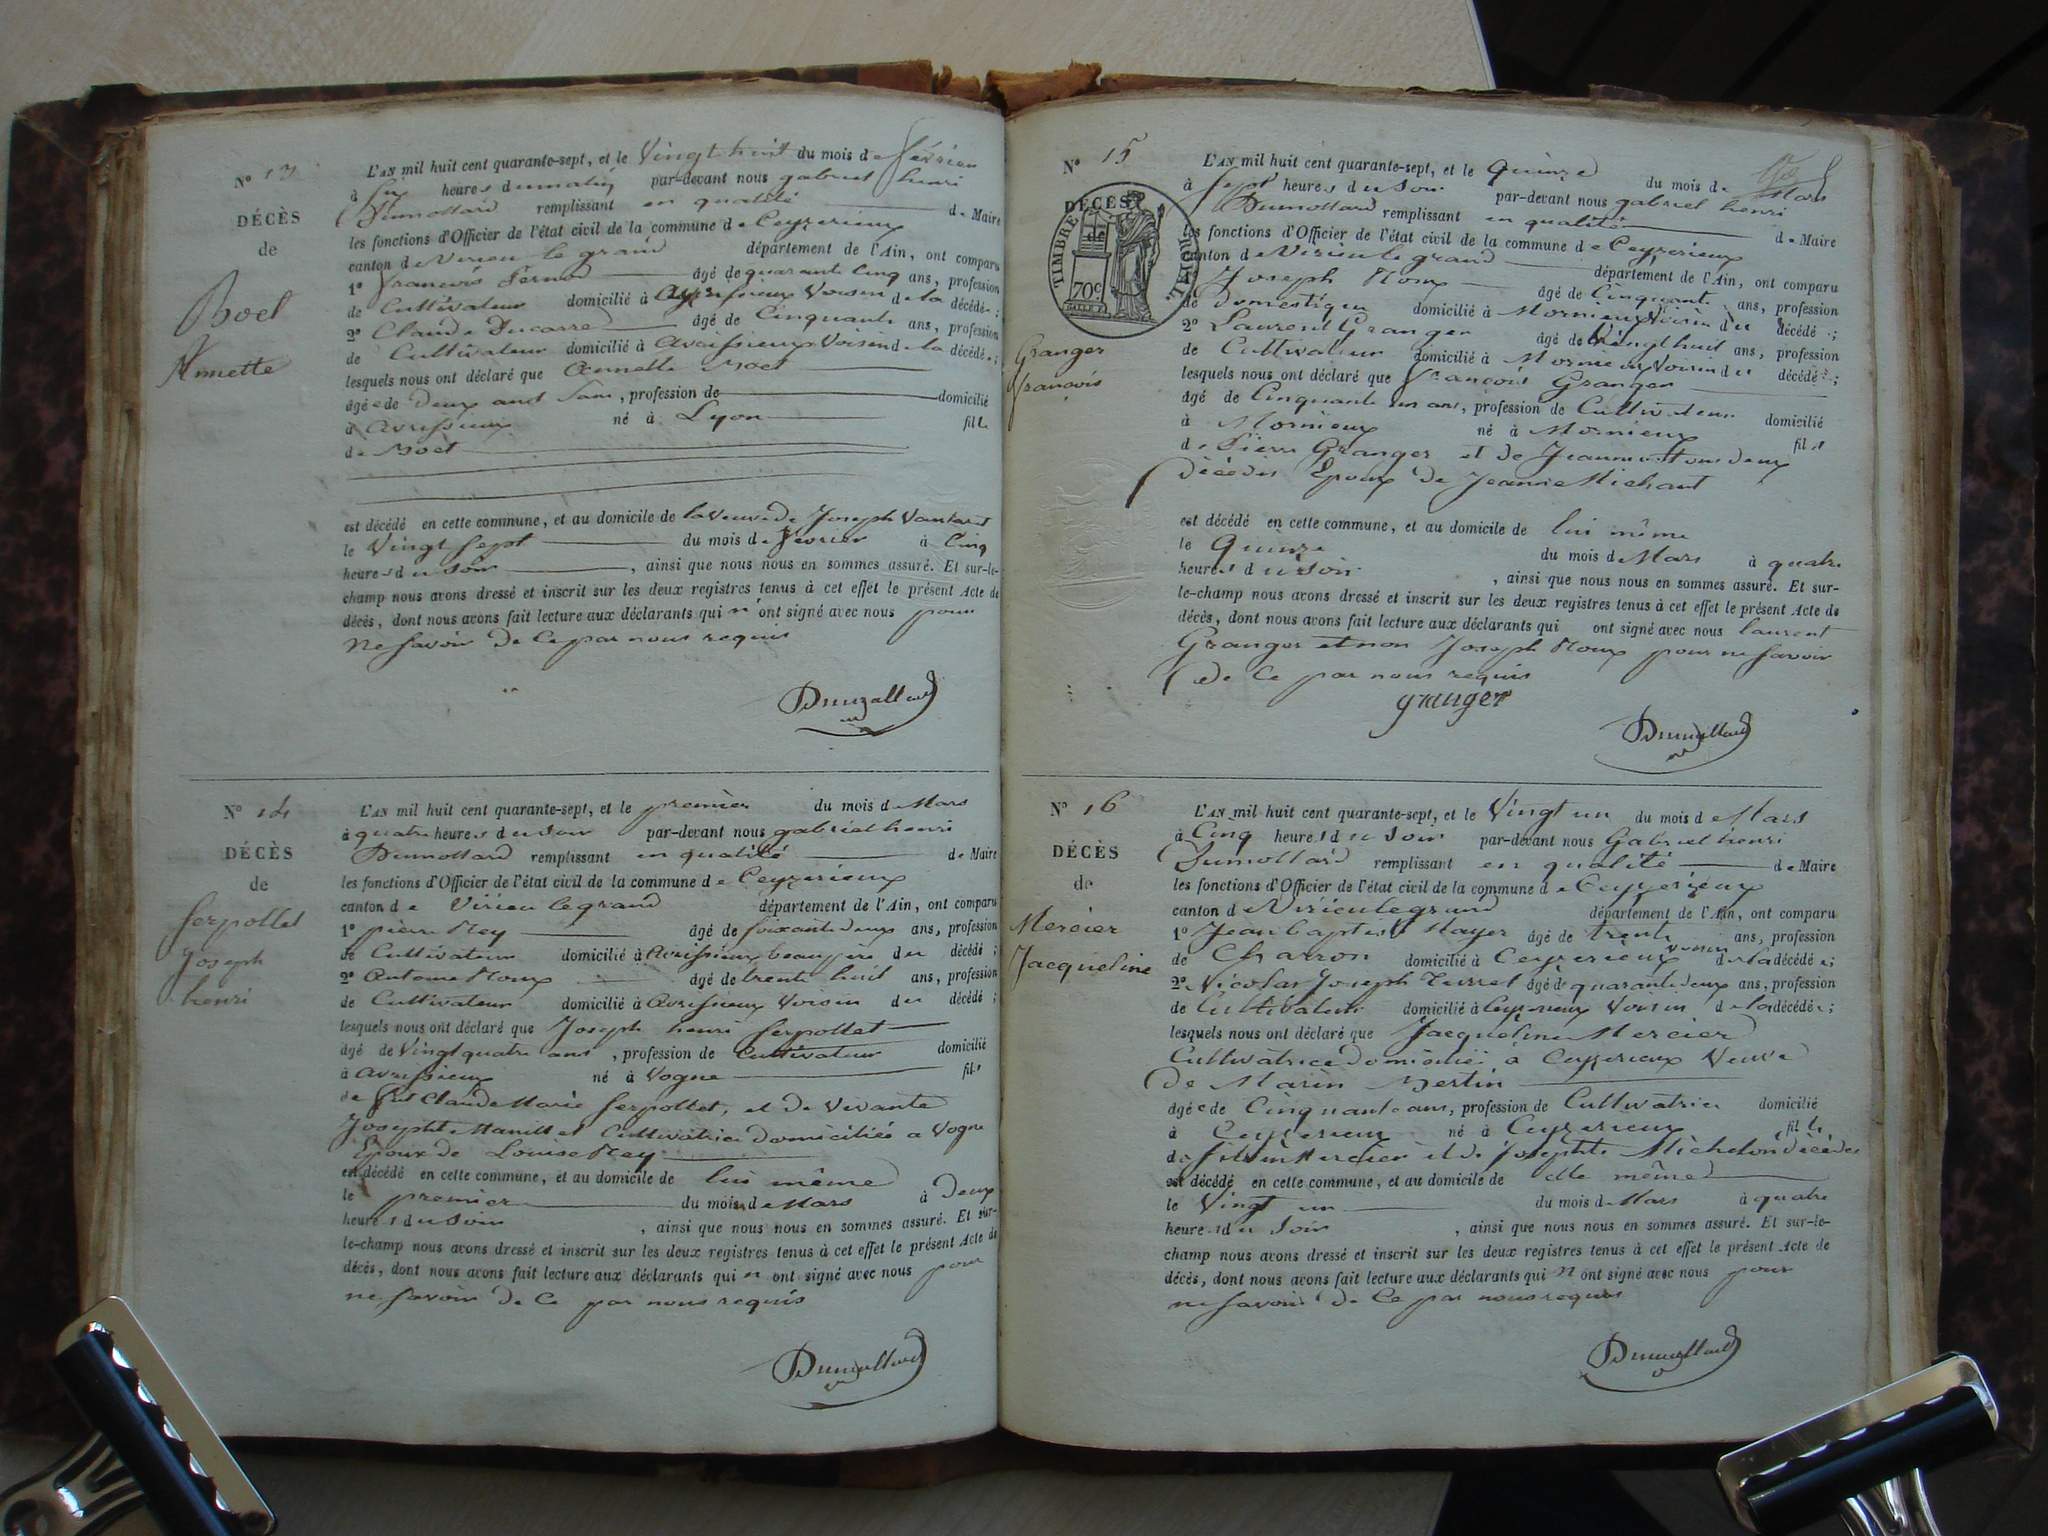 N° 13
DÉCÈS
de
Boel
Annette
L'AN mil huit cent quarante-sept, et le Vingt huit du mois de février
à Six heures du matin par-devant nous gabriel henri
Dumollard remplissant en qualité de Maire
les fonctions d'Officier de l'état civil de la commune de Ceyzerieux
canton de Virieu le grand département de l'Ain, ont comparu
1° francois âgé de quarante Cinq ans, profession
de Cultivateur domicilié à Avrissieux Voisin de la décédée ;
2° Claude Ducarre âgé de Cinquante ans, profession
de Cultivateur domicilié à Avrissieux Voisin de la décédée ;
lesquels nous ont déclaré que Annette Boel
âgée de deux ans , profession de domicilié
à Avrissieux né à Lyon fille
de Boel
est décédé en cette commune, et au domicile de la Veuve de Joseph
le Vingt Sept du mois de février à Cinq
heures du Soir , ainsi que nous nous en sommes assuré. Et sur-le-
champ nous avons dressé et inscrit sur les deux registres tenus à cet effet le présent Acte de
décès, dont nous avons fait lecture aux déclarants qui n'ont signé avec nous pour
ne Savoir de Ce par nous requis
Dumollard
N° 14
DÉCÈS
de
Serpollet
Joseph
henri
L'AN mil huit cent quarante-sept, et le premier du mois de Mars
à quatre heures du Soir par-devant nous gabriel henri
Dumollard remplissant en qualité de Maire
les fonctions d'Officier de l'état civil de la commune de Ceyzerieux
canton de Virieu le grand département de l'Ain, ont comparu
1° pierre Rey âgé de Soixante deux ans, profession
de Cultivateur domicilié à Avrissieux beaupère du décédé ;
2° Antoine Roux âgé de trente huit ans, profession
de Cultivateur domicilié à Avrissieux Voisin du décédé ;
lesquels nous ont déclaré que Joseph henri Serpollet
âgé de Vingt quatre ans , profession de Cultivateur domicilié
à Avrissieux né à Vogne fils
de Claude Marie Serpollet, et de Vivante
Josephte Cultivatrice domiciliée a Vogne
Epoux de Louise Rey
est décédé en cette commune, et au domicile de lui même
le premier du mois de Mars à deux
heures du Soir , ainsi que nous nous en sommes assuré. Et sur-
le-champ nous avons dressé et inscrit sur les deux registres tenus à cet effet le présent Acte de
décès, dont nous avons fait lecture aux déclarants qui n ont signé avec nous pour
ne Savoir de Ce par nous requis
Dumollard
N° 15
DÉCÈS
de
TIMBRE ROYAL
70c
Granger
francois
L'AN mil huit cent quarante-sept, et le Quinze du mois de Mars
à Sept heures du Soir par-devant nous gabriel henri
Dumollard remplissant en qualité de Maire
les fonctions d'Officier de l'état civil de la commune de Ceyzerieux
canton de Virieu le grand département de l'Ain, ont comparu
Joseph Roux âgé de Cinquante ans, profession
de Domestique domicilié à Mornieux Voisin du décédé ;
2° Laurent Granger âgé de Vingt huit ans, profession
de Cultivateur domicilié à Mornieux Voisin du décédé ;
lesquels nous ont déclaré que francois Granger
âgé de Cinquante un ans, profession de Cultivateur domicilié
à Mornieux né à Mornieux fils
de Pierre Granger et de Jeanne deux
Décédés Epoux de Jeanne Michaut
est décédé en cette commune, et au domicile de lui même
le Quinze du mois de Mars à quatre
heures du Soir , ainsi que nous nous en sommes assuré. Et sur-
le-champ nous avons dressé et inscrit sur les deux registres tenus à cet effet le présent Acte de
décès, dont nous avons fait lecture aux déclarants qui ont signé avec nous laurent
Granger et non Joseph Roux pour ne Savoir
de Ce par nous requis
granger
Dumollard
N° 16
DÉCÈS
de
Mercier
Jacqueline
L'AN mil huit cent quarante-sept, et le Vingt un du mois de Mars
à Cinq heures du Soir par-devant nous Gabriel henri
Dumollard remplissant en qualité de Maire
les fonctions d'Officier de l'état civil de la commune de Ceyzerieux
canton de Virieu le grand département de l'Ain, ont comparu
1° Jean baptiste Mayer âgé de trente ans, profession
de Charron domicilié à Ceyzerieux voisin de la décédée ;
2° Nicolas Joseph âgé de quarante deux ans, profession
de Cultivateur domicilié à Ceyzerieux Voisin de la décédée ;
lesquels nous ont déclaré que Jacqueline Mercier
Cultivatrice domiciliée a Ceyzerieux Veuve
de Marin Bertin
âgée de Cinquante ans, profession de Cultivatrice domicilié
à Ceyzerieux né à Ceyzerieux fille
de Mercier et de Josephte Michelon décédés
est décédé en cette commune, et au domicile de elle même
le Vingt un du mois de Mars à quatre
heures du Soir , ainsi que nous nous en sommes assuré. Et sur-le-
champ nous avons dressé et inscrit sur les deux registres tenus à cet effet le présent Acte de
décès, dont nous avons fait lecture aux déclarants qui n ont signé avec nous pour
ne Savoir de Ce par nous requis
Dumollard